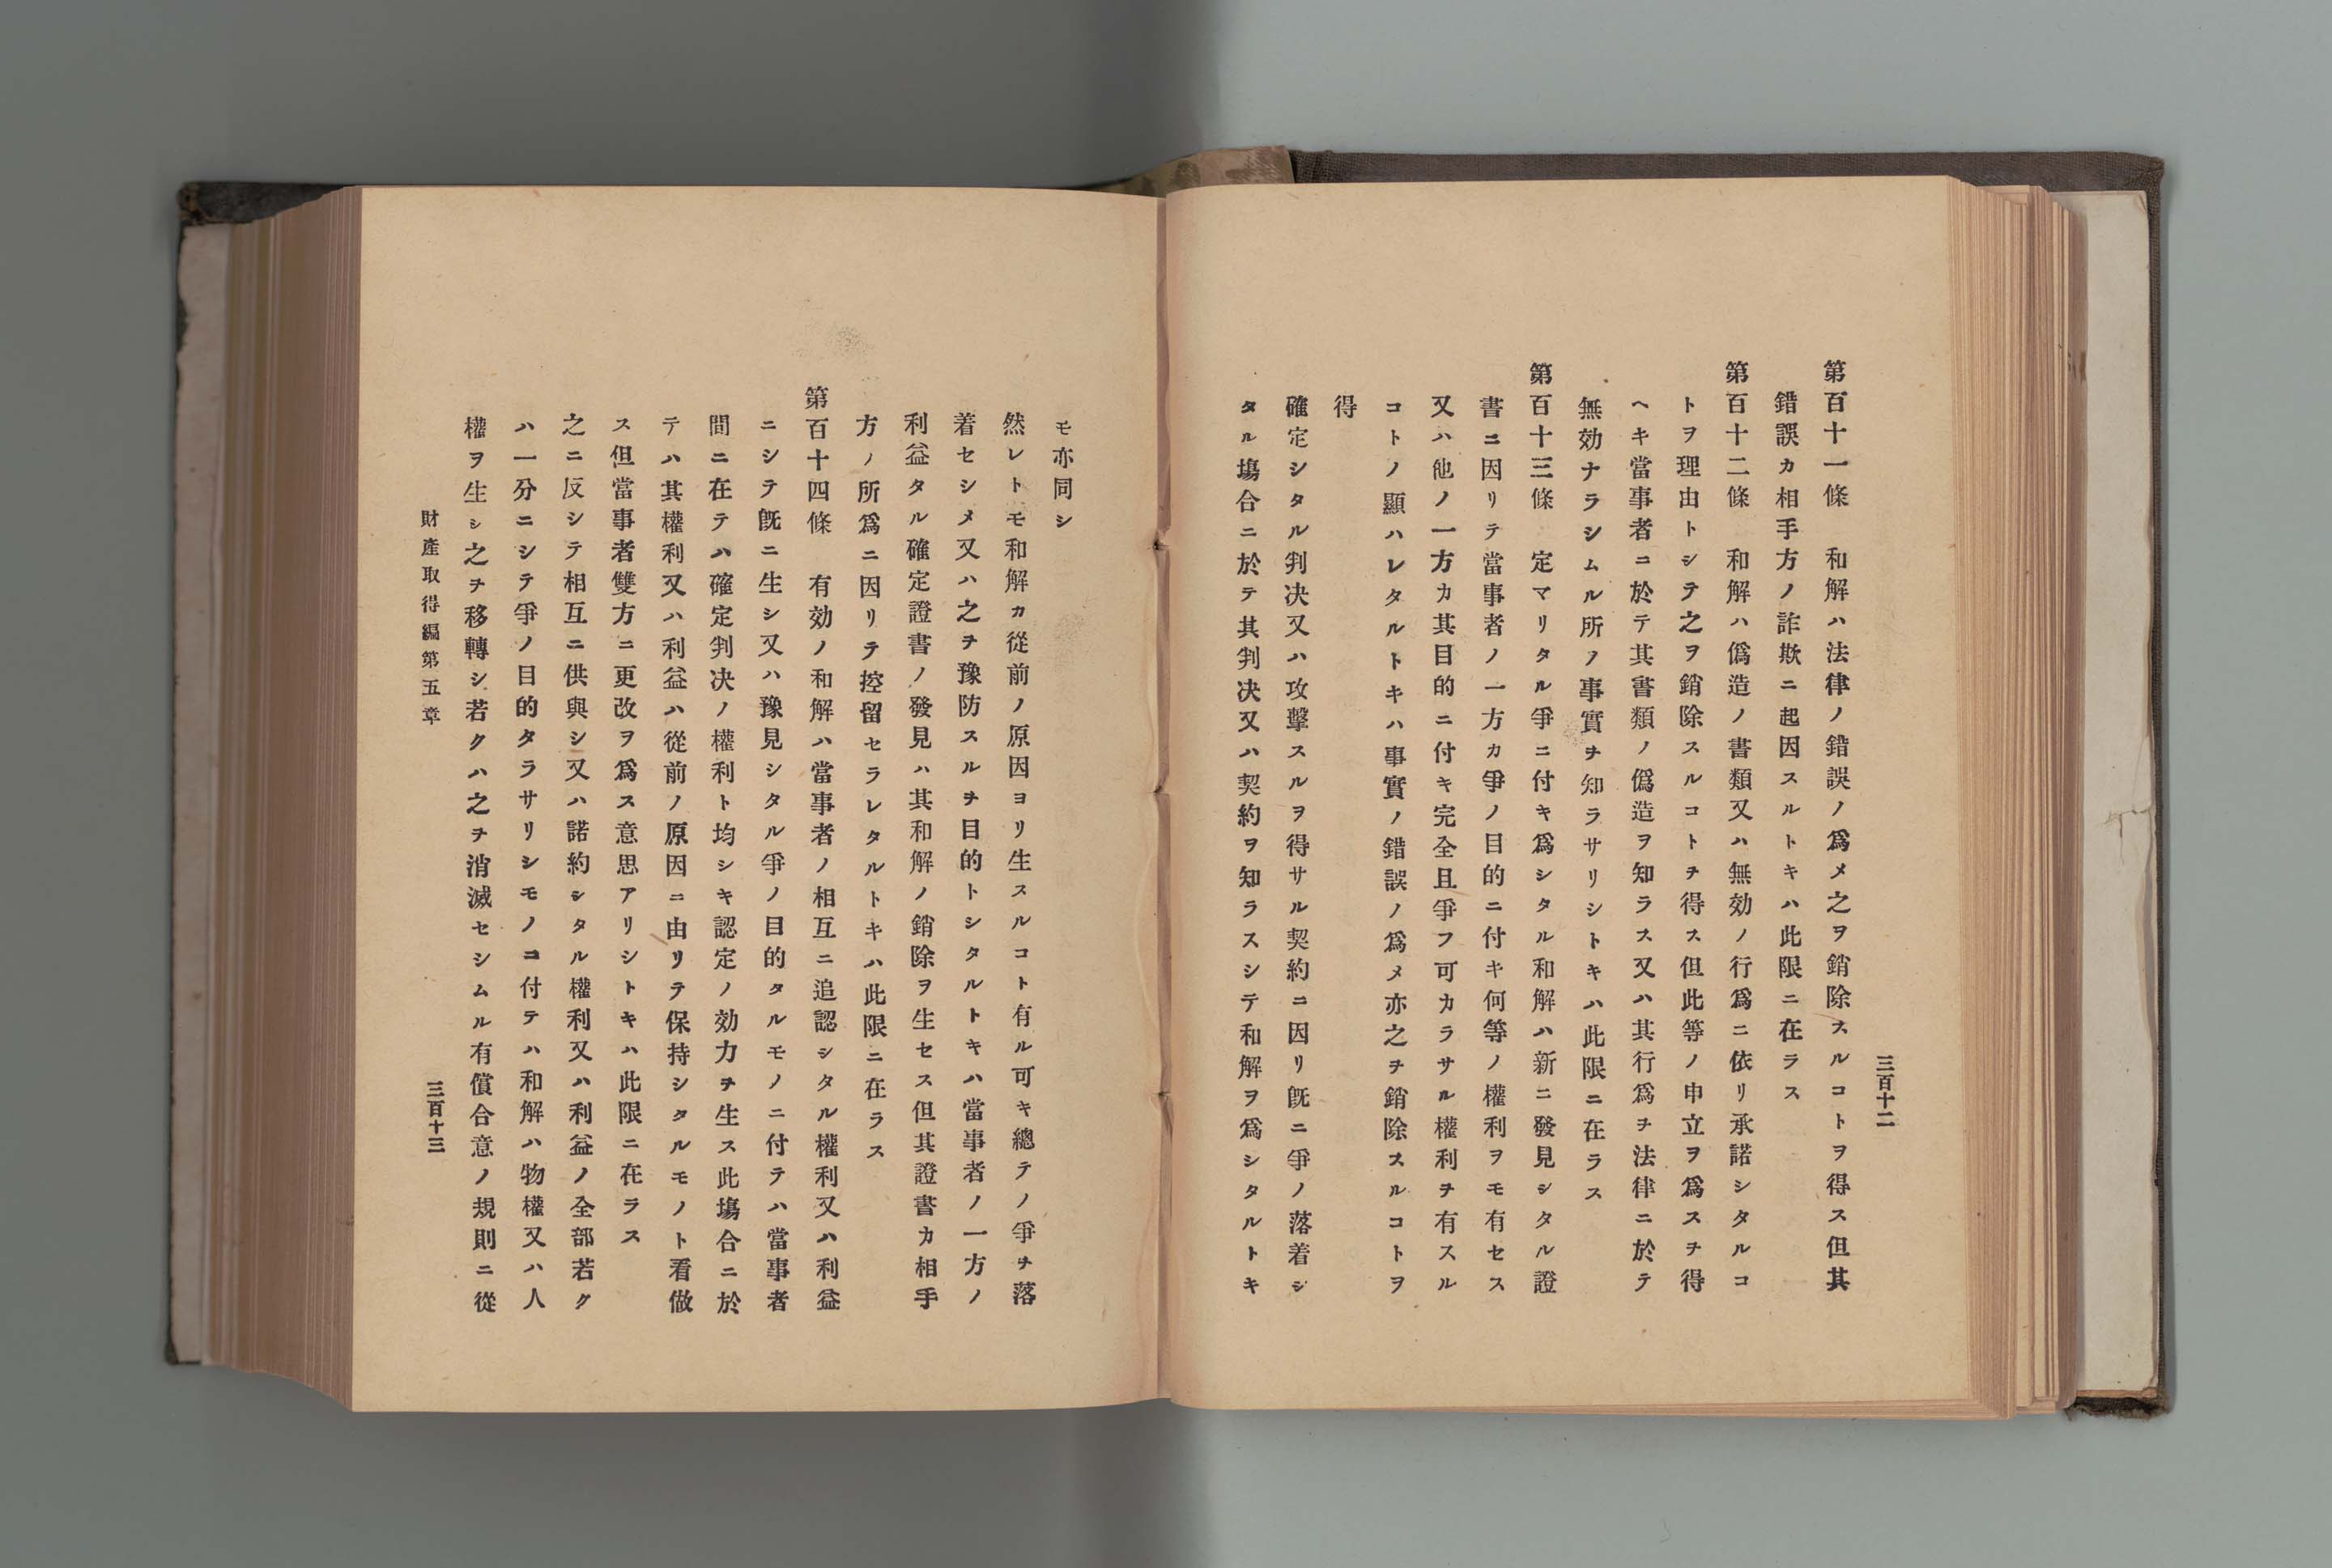 三百十二
第百十一條　和解ハ法律ノ錯誤ノ爲メ之ヲ銷除スルコトヲ得ス但其
錯誤カ相手方ノ詐欺ニ起因スルトキハ此限ニ在ラス
第百十二條　和解ハ僞造ノ書類又ハ無効ノ行爲ニ依リ承諾シタルコ
トヲ理由トシテ之ヲ銷除スルコトヲ得ス但此等ノ申立ヲ爲スヲ得
ヘキ當事者ニ於テ其書類ノ僞造ヲ知ラス又ハ其行爲ヲ法律ニ於テ
無効ナラシムル所ノ事實ヲ知ラサリシトキハ此限ニ在ラス
第百十三條　定マリタル爭ニ付キ爲シタル和解ハ新ニ發見シタル證
書ニ因リテ當事者ノ一方カ爭ノ目的ニ付キ何等ノ權利ヲモ有セス
又ハ他ノ一方カ其目的ニ付キ完全且爭フ可カラサル權利ヲ有スル
コトノ顯ハレタルトキハ事實ノ錯誤ノ爲メ亦之ヲ銷除スルコトヲ
得
確定シタル判决又ハ攻擊スルヲ得サル契約ニ因リ既ニ爭ノ落着シ
タル塲合ニ於テ其判决又ハ契約ヲ知ラスシテ和解ヲ爲シタルトキ
モ亦同シ
然レトモ和解カ從前ノ原因ヨリ生スルコト有ル可キ總テノ爭ヲ落
着セシメ又ハ之ヲ豫防スルヲ目的トシタルトキハ當事者ノ一方ノ
利益タル確定證書ノ發見ハ其和解ノ銷除ヲ生セス但其證書カ相手
方ノ所爲ニ因リテ控留セラレタルトキハ此限ニ在ラス
第百十四條　有効ノ和解ハ當事者ノ相互ニ追認シタル權利又ハ利益
ニシテ既ニ生シ又ハ豫見シタル爭ノ目的タルモノニ付テハ當事者
間ニ在テハ確定判决ノ權利ト均シキ認定ノ効力ヲ生ス此塲合ニ於
テハ其權利又ハ利益ハ從前ノ原因ニ由リテ保持シタルモノト看做
ス但當事者雙方ニ更改ヲ爲ス意思アリシトキハ此限ニ在ラス
之ニ反シテ相互ニ供與シ又ハ諾約シタル權利又ハ利益ノ全部若ク
ハ一分ニシテ爭ノ目的タラサリシモノニ付テハ和解ハ物權又ハ人
權ヲ生シ之ヲ移轉シ若クハ之ヲ消滅セシムル有償合意ノ規則ニ從
財產取得編第五章
三百十三